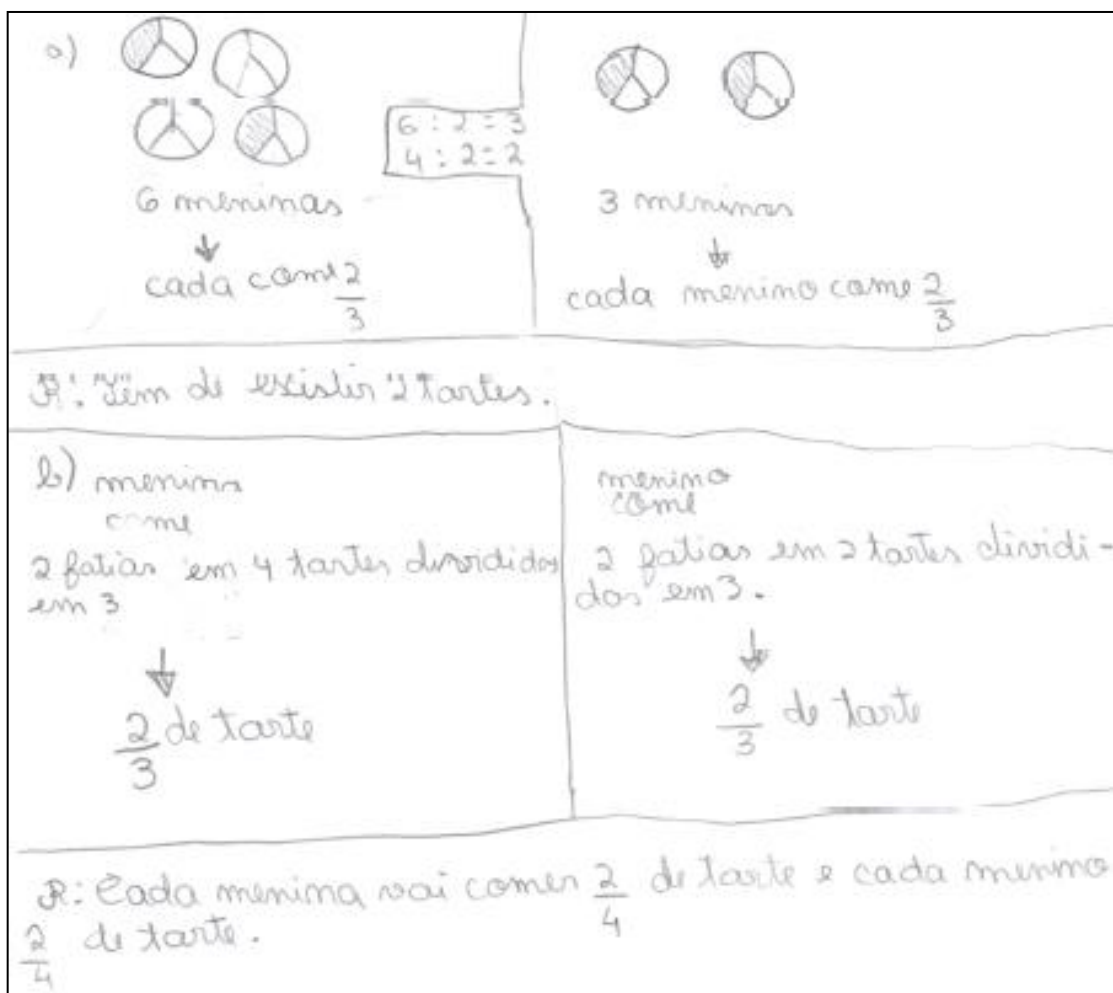 a)
6 : 2 = 3
4 : 2 = 2
6 meninas
cada come 2/3
3 meninos
cada menino come 2/3
R: Têm de existir 2 tartes.
b) menina
come
2 fatias em 4 tartes divididas
em 3
2/3 de tarte
menino
come
2 fatias em 2 tartes dividi-
das em 3.
2/3 de tarte
R: Cada menina vai comer 2/4 de tarte e cada menino
2/4 de tarte.